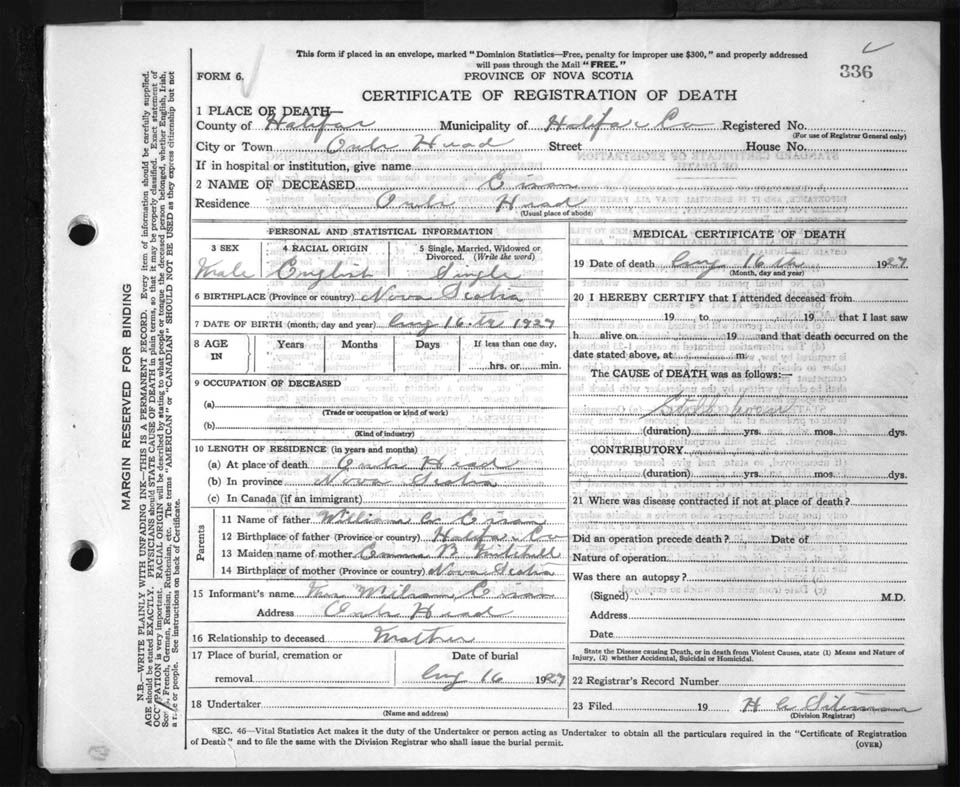 This form if placed in an envelope, marked "Dominion Statistics—Free, penalty for improper use $300," and properly addressed
will pass through the Mail "FREE."
336
FORM 6.
PROVINCE OF NOVA SCOTIA
CERTIFICATE OF REGISTRATION OF DEATH
1 PLACE OF DEATH—
County of Halifax Municipality of Halifax Co Registered No.
(For use of Registrar General only)
City or Town Owls Head Street House No.
If in hospital or institution, give name
2 NAME OF DECEASED
Residence Owls Head
(Usual place of abode)
PERSONAL AND STATISTICAL INFORMATION
3 SEX 4 RACIAL ORIGIN 5 Single, Married, Widowed or Divorced. (Write the word)
Male English Single
6 BIRTHPLACE (Province or country) Nova Scotia
7 DATE OF BIRTH (month, day and year) Aug 16 th 1927
8 AGE IN Years Months Days If less than one day,
hrs. or min.
9 OCCUPATION OF DECEASED
(a)
(Trade or occupation or kind of work)
(b)
(Kind of industry)
10 LENGTH OF RESIDENCE (in years and months)
(a) At place of death Owls Head
(b) In province Nova Scotia
(c) In Canada (if an immigrant)
Parents
11 Name of father William
12 Birthplace of father (Province or country) Halifax Co
13 Maiden name of mother Emma B
14 Birthplace of mother (Province or country) Nova Scotia
15 Informant's name
Address Owls Head
16 Relationship to deceased Mother
17 Place of burial, cremation or Date of burial
removal Aug 16 1927
18 Undertaker
(Name and address)
MEDICAL CERTIFICATE OF DEATH
19 Date of death Aug 16 th 1927
(Month, day and year)
20 I HEREBY CERTIFY that I attended deceased from
19 , to 19 that I last saw
h alive on 19 and that death occurred on the
date stated above, at m.
The CAUSE of DEATH was as follows:—
Still born
(duration) yrs. mos. dys.
CONTRIBUTORY
(duration) yrs. mos. dys.
21 Where was disease contracted if not at place of death?
Did an operation precede death? Date of
Nature of operation
Was there an autopsy?
(Signed) M.D.
Address
Date
State the Disease causing Death, or in death from Violent Causes, state (1) Means and Nature of
Injury, (2) whether Accidental, Suicidal or Homicidal.
22 Registrar's Record Number
23 Filed 19
(Division Registrar)
SEC. 46—Vital Statistics Act makes it the duty of the Undertaker or person acting as Undertaker to obtain all the particulars required in the "Certificate of Registration
of Death" and to file the same with the Division Registrar who shall issue the burial permit. (OVER)
MARGIN RESERVED FOR BINDING
N.B.—WRITE PLAINLY WITH UNFADING INK—THIS IS A PERMANENT RECORD. Every item of information should be carefully supplied.
AGE should be stated EXACTLY. PHYSICIANS should STATE CAUSE OF DEATH in plain terms, so that it may be properly classified. Exact statement of
OCCUPATION is very important. RACIAL ORIGIN will be described by stating to what people or tongue the deceased person belonged, whether English, Irish,
French, German, Russian, Ruthenian, etc. The terms "AMERICAN" or "CANADIAN" SHOULD NOT BE USED as they express citizenship but not
a race or people. See instructions on back of Certificate.